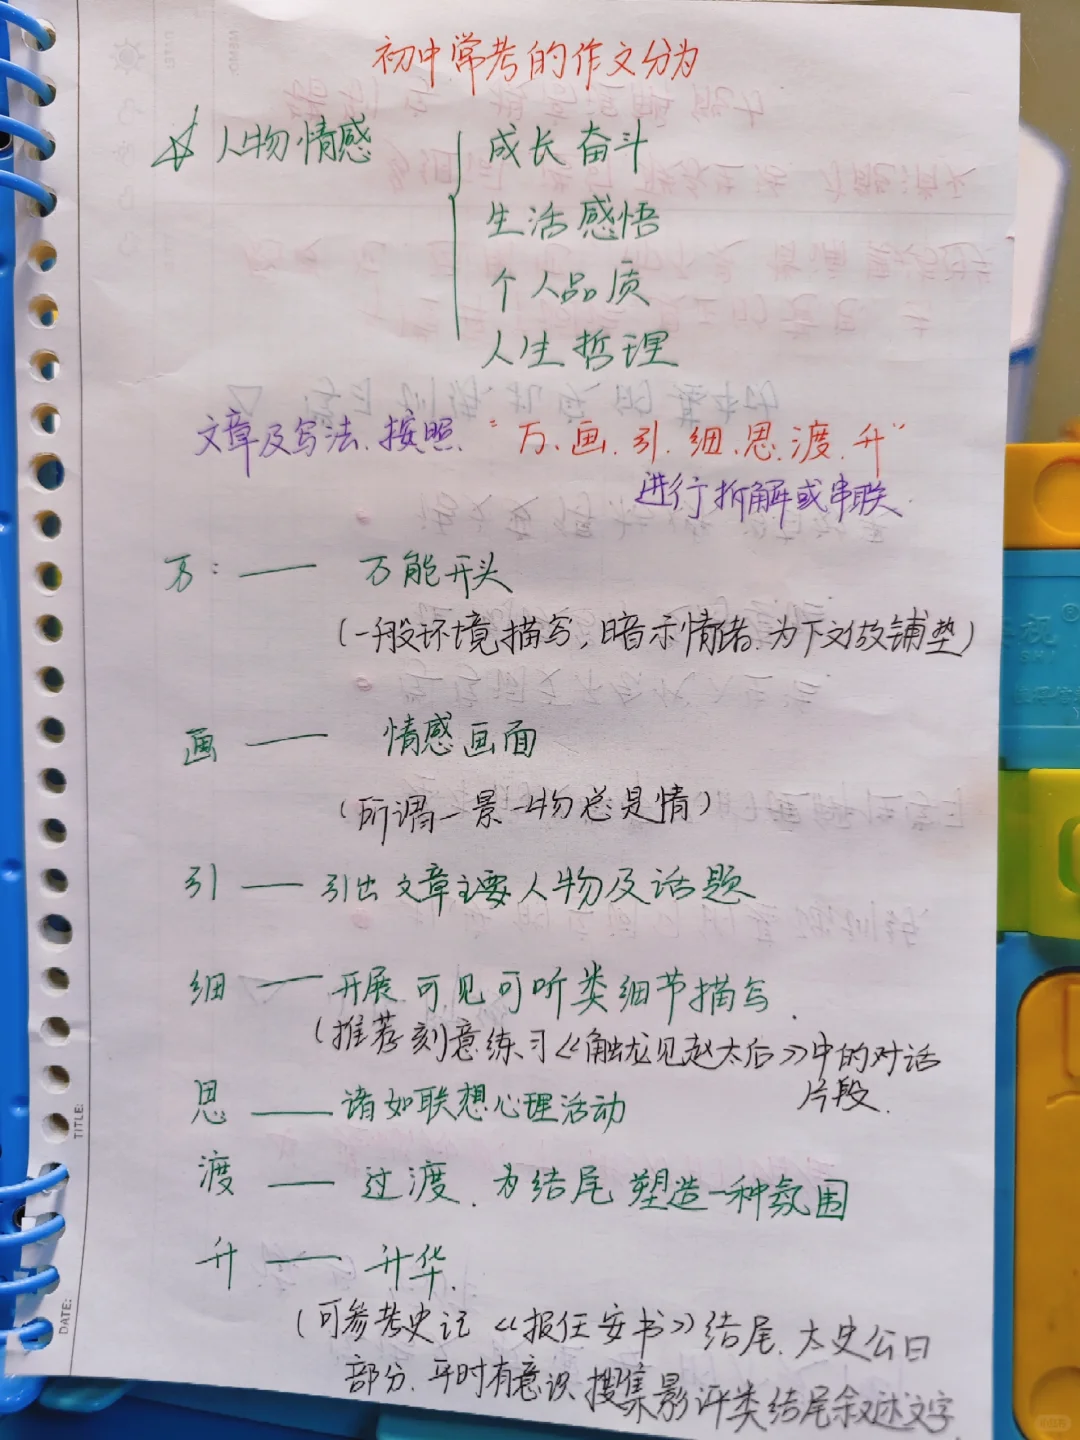 初中常考的作文分为
人物情感
成长奋斗
生活感悟
个人品质
人生哲理
文章及写法、按照“万、画、引、细、思、渡、升”
进行拆解或串联.
万:—— 万能开头
(一般环境描写,暗示情绪.为下文做铺垫)
画 —— 情感画面
(所谓一景一物总是情)
引 —— 引出文章主要人物及话题
细 —— 开展可见可听类细节描写.
(推荐刻意练习《触龙见赵太后》中的对话
片段.
思 —— 诸如联想心理活动
渡 —— 过渡、为结尾塑造一种氛围
升 —— 升华.
(可参考史记《报任安书》结尾.太史公曰
部分.平时有意识搜集影评类结尾叙述文字.
TITLE:
DATE: